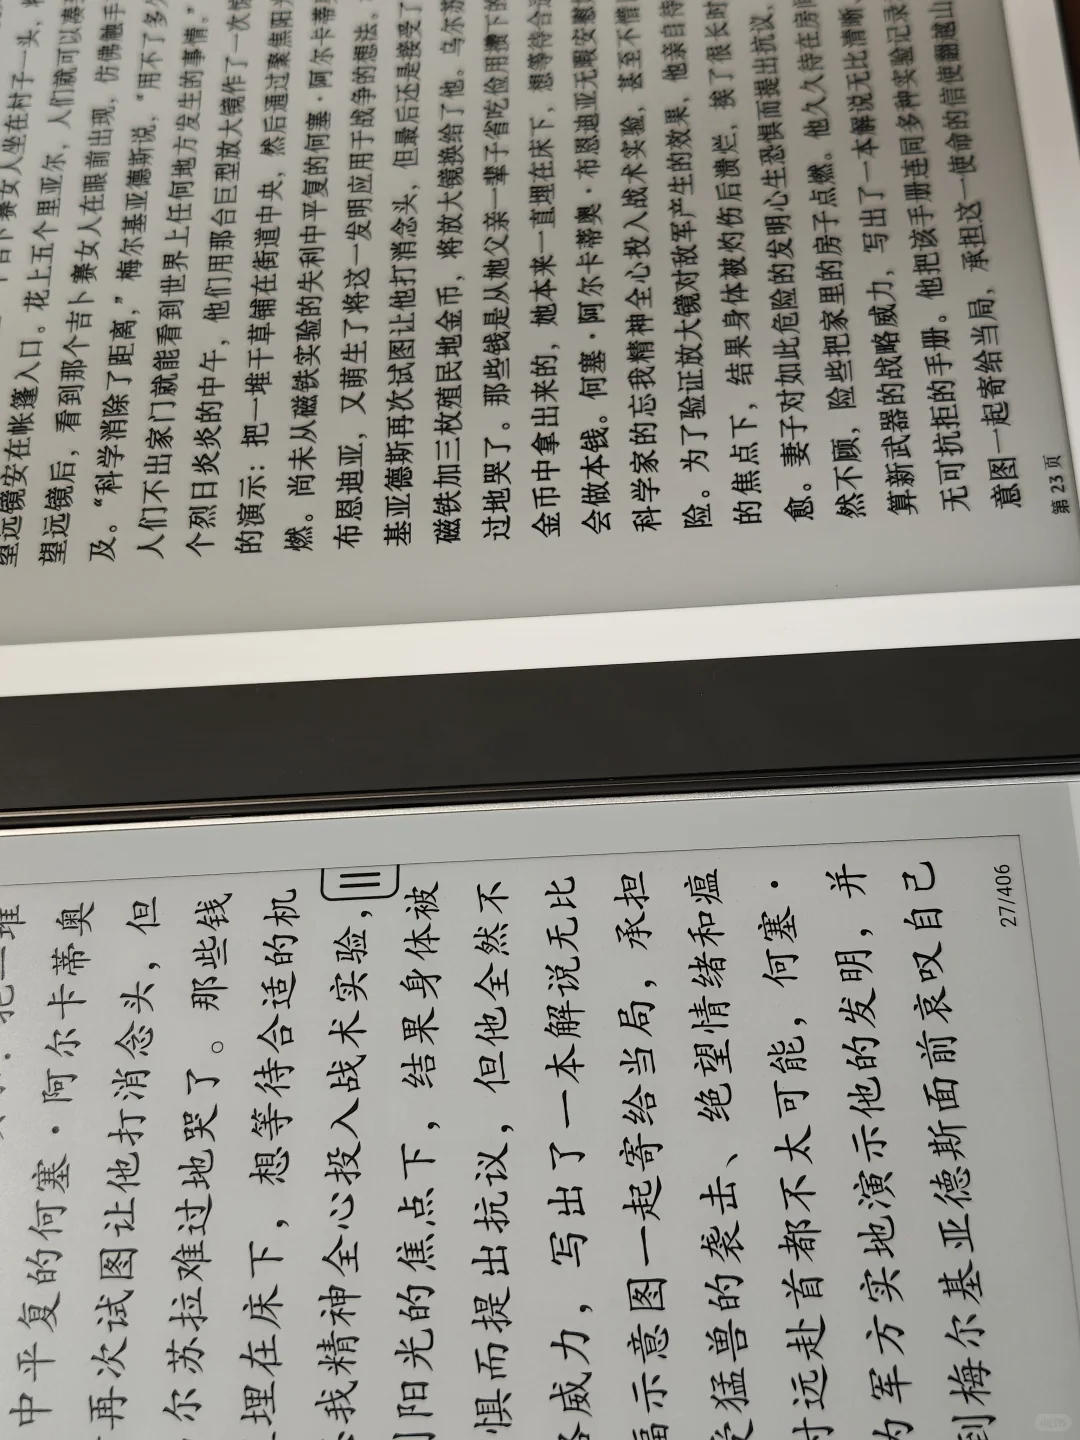 吉卜赛女人坐在村子一头，
望远镜安在帐篷入口。花上五个里亚尔，人们就可以凑
望远镜后，看到那个吉卜赛女人在眼前出现，仿佛触手
及。“科学消除了距离，”梅尔基亚德斯说，“用不了多久
人们不出家门就能看到世界上任何地方发生的事情。”
个烈日炎炎的中午，他们用那台巨型放大镜作了一次惊
的演示：把一堆干草铺在街道中央，然后通过聚焦阳光
燃。尚未从磁铁实验的失利中平复的何塞·阿尔卡蒂奥
布恩迪亚，又萌生了将这一发明应用于战争的想法。
基亚德斯再次试图让他打消念头，但最后还是接受了
磁铁加三枚殖民地金币，将放大镜换给了他。乌尔苏
过地哭了。那些钱是从她父亲一辈子省吃俭用攒下的
金币中拿出来的，她本来一直埋在床下，想等待合适
会做本钱。何塞·阿尔卡蒂奥·布恩迪亚无暇安慰
科学家的忘我精神全心投入战术实验，甚至不惜
险。为了验证放大镜对敌军产生的效果，他亲自待
的焦点下，结果身体被灼伤后溃烂，挨了很长时
愈。妻子对如此危险的发明心生恐惧而提出抗议，
然不顾，险些把家里的房子点燃。他久久待在房间
算新武器的战略威力，写出了一本解说无比清晰、
无可抗拒的手册。他把该手册连同多种实验记录
意图一起寄给当局，承担这一使命的信使翻越山
第 23 页
中平复的何塞·阿尔卡蒂奥
再次试图让他打消念头，但
尔苏拉难过地哭了。那些钱
埋在床下，想等待合适的机
我精神全心投入战术实验，
阳光的焦点下，结果身体被
惧而提出抗议，但他全然不
威力，写出了一本解说无比
示意图一起寄给当局，承担
受猛兽的袭击、绝望情绪和瘟
远赴首都不太可能，何塞·
为军方实地演示他的发明，并
到梅尔基亚德斯面前哀叹自己
27/406